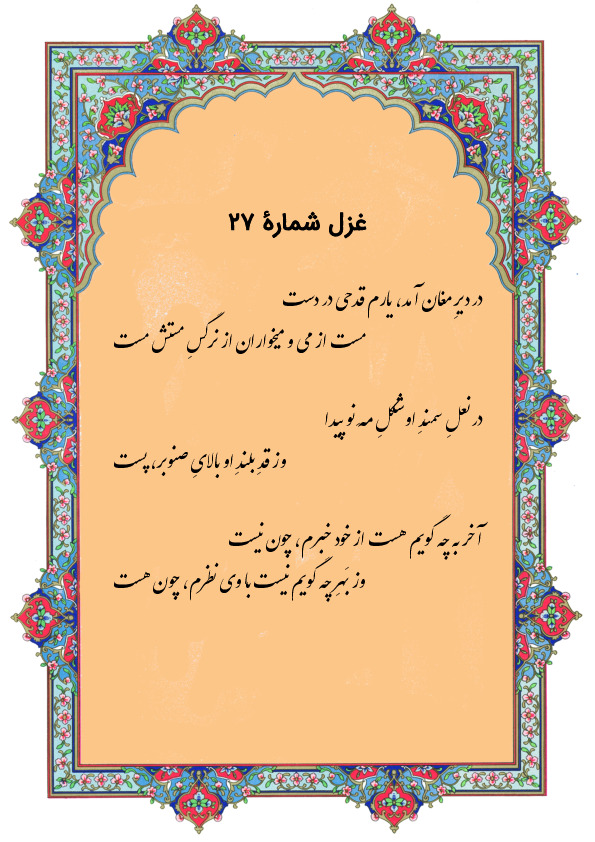 غزل شمارهٔ ۲۷
در دیرِ مغان آمد، یارم قدحی در دست
مست از می و میخواران از نرگسِ مستش مست
در نعلِ سمندِ او شکلِ مه نو پیدا
وز قدِ بلندِ او بالایِ صنوبر، پست
آخر به چه گویم هست از خود خبرم، چون نیست
وز بَهرِ چه گویم نیست با وی نظرم، چون هست